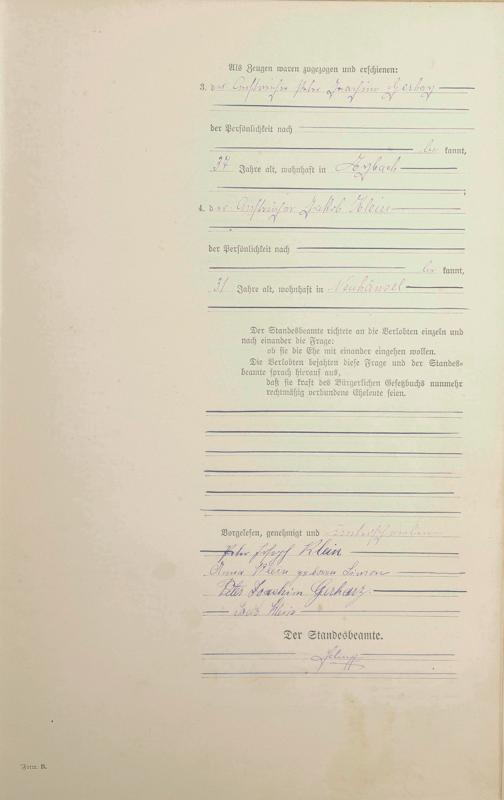 Als Zeugen waren zugezogen und erschienen:
3. der Anstreicher Peter Joachim
der Persönlichkeit nach
be kannt,
37 Jahre alt, wohnhaft in
4. der Anstreicher Jakob Klein
der Persönlichkeit nach
be kannt,
31 Jahre alt, wohnhaft in Neuhäusel
Der Standesbeamte richtete an die Verlobten einzeln und
nach einander die Frage:
ob sie die Ehe mit einander eingehen wollen.
Die Verlobten bejahten diese Frage und der Standes-
beamte sprach hierauf aus,
daß sie kraft des Bürgerlichen Gesetzbuchs nunmehr
rechtmäßig verbundene Eheleute seien.
Vorgelesen, genehmigt und unterschrieben
Peter Joseph Klein
Anna Klein geborene Simon
Peter Joachim Gerharz
Jakob Klein
Der Standesbeamte.
Form. B.